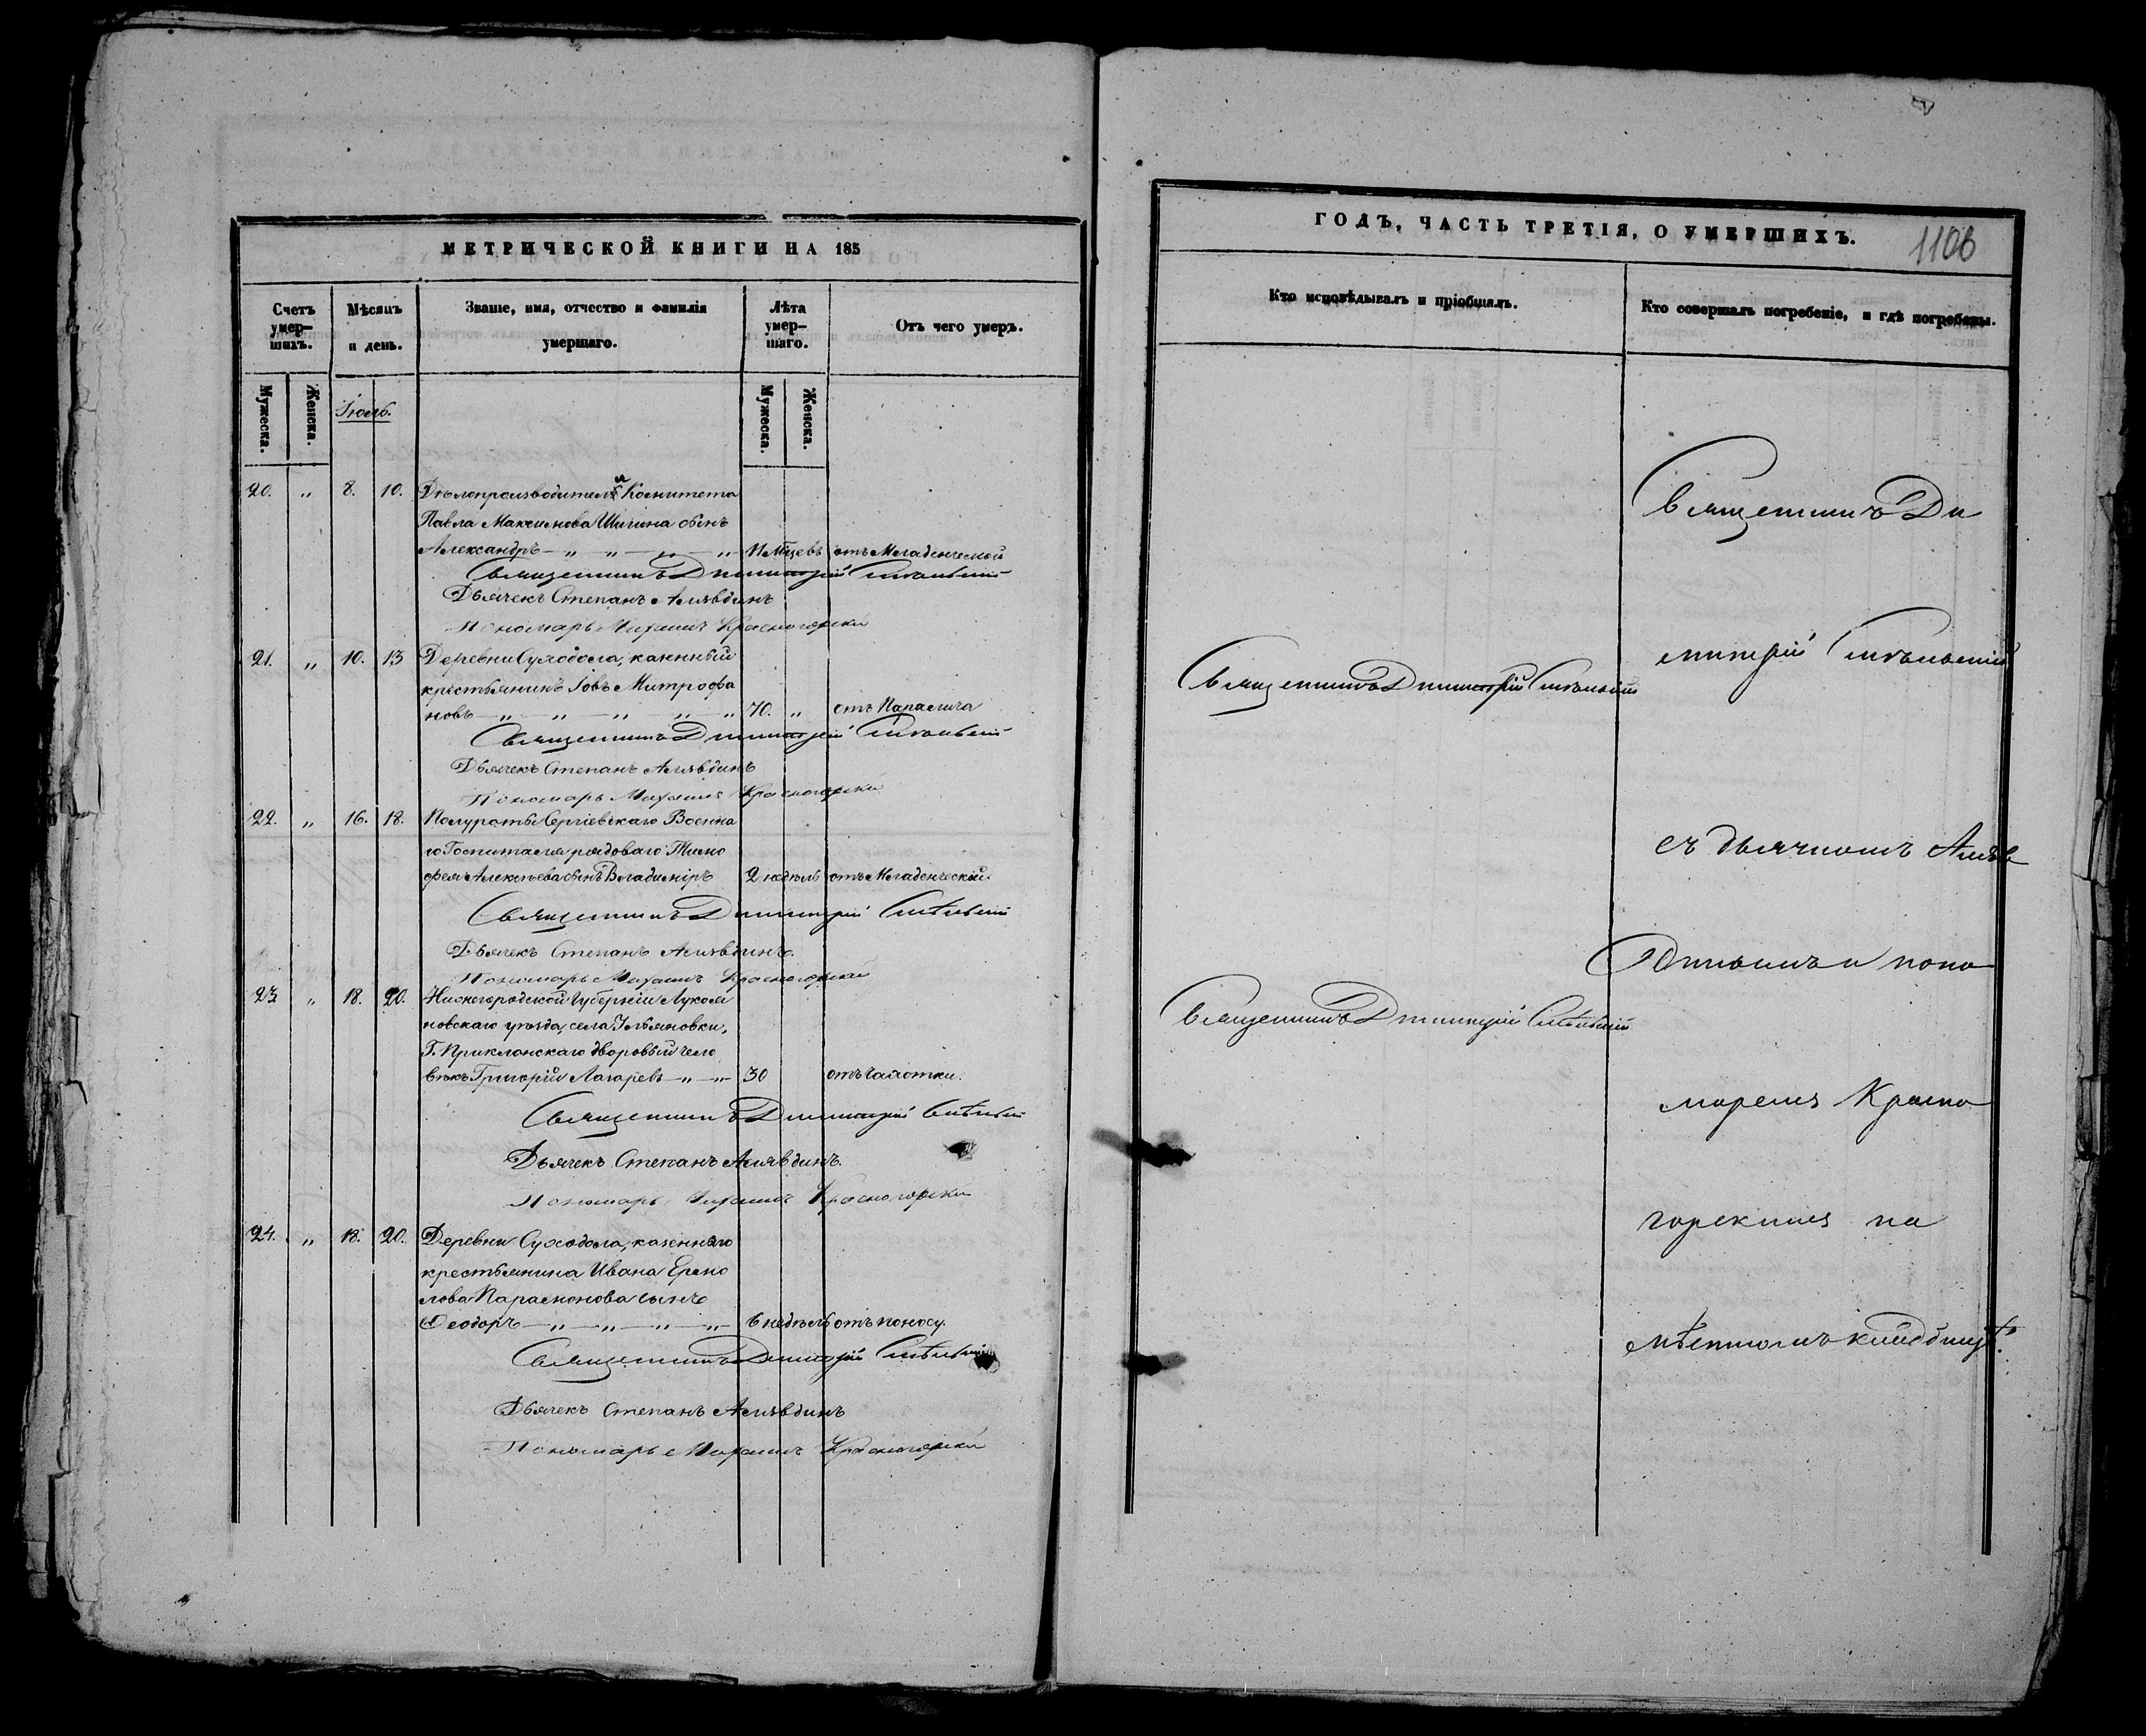 МЕТРИЧЕСКОЙ КНИГИ НА 185
Счетъ умер-шихъ.
Мѣсяцъ и день.
Званіе, имя, отчество и фамилія умершаго.
Лѣта умер-шаго.
Отъ чего умеръ.
Мужеска.
Женска.
Мужеска.
Женска.
Іюль.
20. " 8. 10. Дѣлопроизводителя Комитета
Павла Максимова Шишина сынъ
Александръ — " — " — " — " 11 Мѣсцевъ отъ Младенческой
Священникъ Димитрій
Дьячекъ Степанъ Алявдинъ
Пономарь Михаилъ Красногорскій
21. " 10. 13 Деревни Суходола, казенный
крестьянинъ Іовъ Митрофа
новъ — " — " — " — " — " 70. " отъ Паралича
Священникъ Димитрій
Дьячекъ Степанъ Алявдинъ
Пономарь Михаилъ Красногорскій
22. " 16. 18. Полуроты Сергіевскаго Военна
го Госпиталя рядоваго Тимо
фея Алексѣева сынъ Владиміръ 2 недѣль отъ Младенческой.
Священникъ Димитрій
Дьячекъ Степанъ Алявдинъ.
Пономарь Михаилъ Красногорскій
23. " 18. 20. Нижегородской Губерніи Лукоя
новскаго уѣзда, села Ульяновки,
Г. Приклонскаго дворовый чело
вѣкъ Григорій Лазаревъ — " — " 30 отъ Чахотки.
Священникъ Димитрій
Дьячекъ Степанъ Алявдинъ.
Пономарь Михаилъ Красногорскій
24. " 18. 20. Деревни Суходола, казеннаго
крестьянина Ивана Ермо
лова Парамонова сынъ
Ѳеодоръ — " — " — " — " 6 недѣль отъ поносу.
Священникъ Димитрій
Дьячекъ Степанъ Алявдинъ
Пономарь Михаилъ Красногорскій
ГОДЪ, ЧАСТЬ ТРЕТІЯ, О УМЕРШИХЪ.
1106
Кто исповѣдывалъ и пріобщалъ.
Кто совершалъ погребеніе, и гдѣ погребены.
Священникъ Димитрій
Священникъ Димитрій
Священникъ Ди
митрій
съ дьячкомъ Аляв
динымъ и поно
маремъ Красно
горскимъ на
мѣстномъ кладбищѣ.